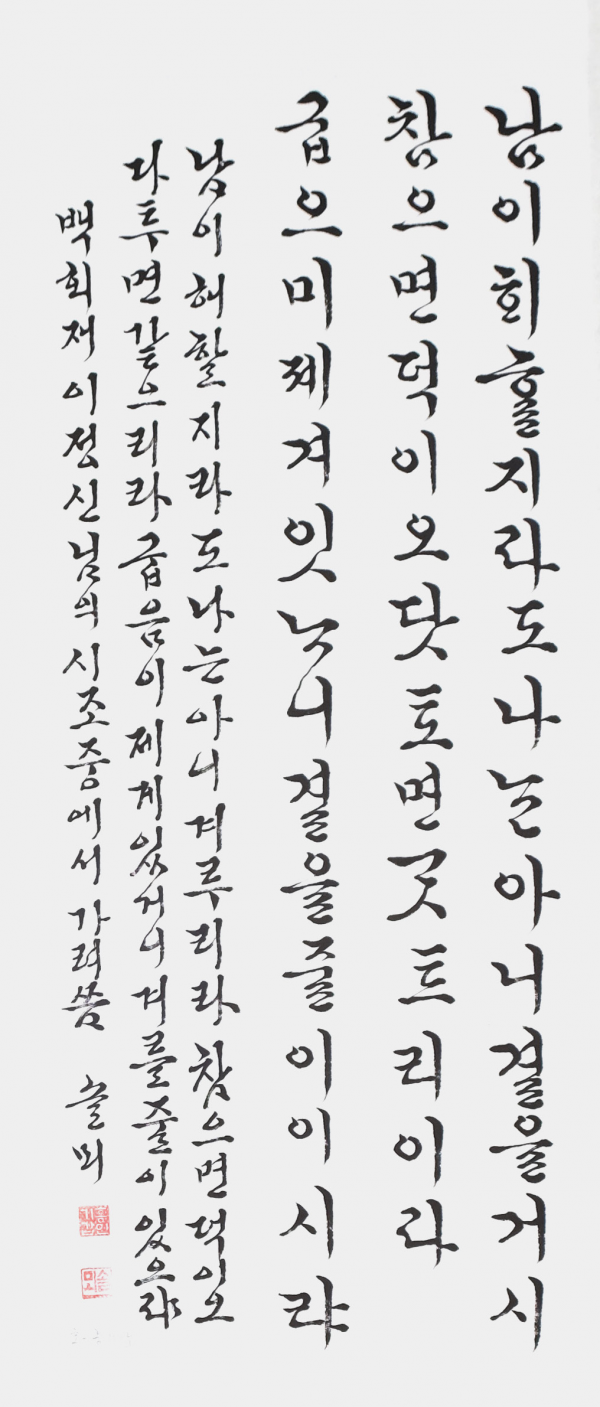 남이회홀지라도나는아니결을거시
참으면덕이오닷토면ᄀᆞᆺ트리이라
굽으미제겨잇ᄂᆞᆺ니결을줄이이시랴
남이해할지라도나는아니겨루리라참으면덕이오
다투면같으리라굽음이제게있거니겨룰줄이있으랴
백회재이정신님의시조중에서가려씀 솔뫼